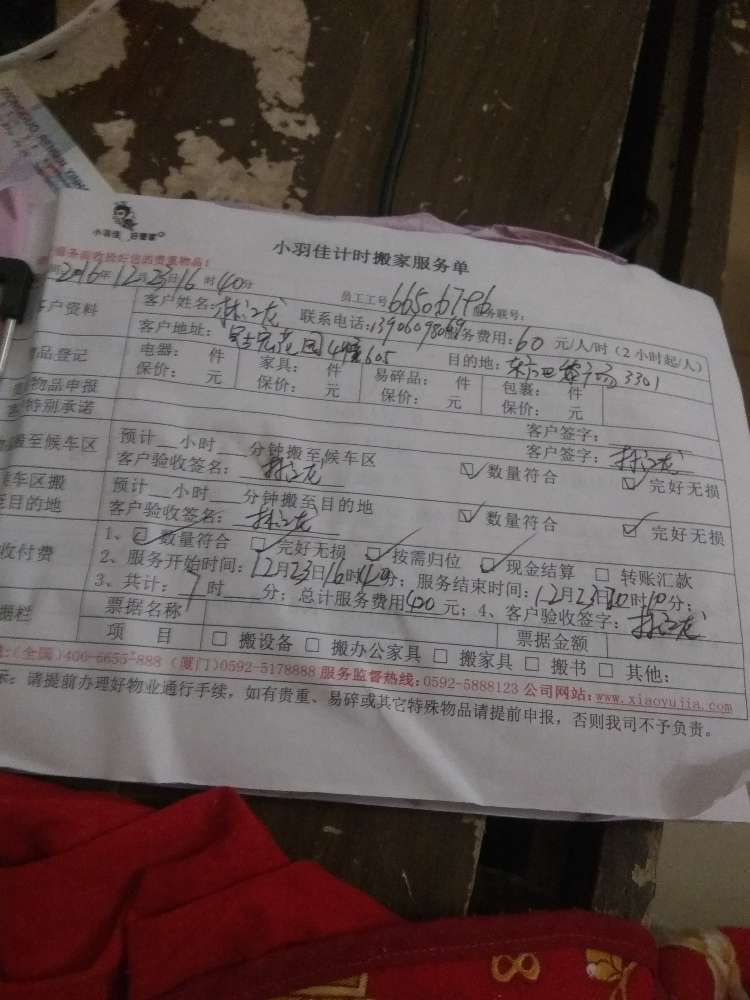 小羽佳 好搬家
小羽佳计时搬家服务单
服务前收捡好您的贵重物品!
2016年12月23日16时40分
员工工号 服务联号:
客户资料 客户姓名: 林江龙 联系电话: 服务费用: 60 元/人/时(2小时起/人)
客户地址: 花园4幢605 目的地: 3301
品登记 电器: 件 家具: 件 易碎品: 件 包裹: 件
保价: 元 保价: 元 保价: 元 保价: 元
物品申报 客户签字:
特别承诺 客户签字: 林江龙
搬至候车区 预计__小时____分钟搬至候车区
客户验收签名: 林江龙 ☑ 数量符合 ☑ 完好无损
候车区搬至目的地 预计__小时____分钟搬至目的地
客户验收签名: 林江龙 ☑ 数量符合 ☑ 完好无损
收付费 1、☑ 数量符合 □ 完好无损 ☑ 按需归位 ☑ 现金结算 □ 转账汇款
2、服务开始时间: 12月23日16时40分; 服务结束时间: 12月23日 时10分;
3、共计: 7时____分; 总计服务费用400元; 4、客户验收签字: 林江龙
据栏 票据名称 票据金额
项 目 □ 搬设备 □ 搬办公家具 □ 搬家具 □ 搬书 □ 其他:
(全国)400-6655-888 (厦门)0592-5178888 服务监督热线:0592-5888123 公司网站:www.xiaoyujia.com
示: 请提前办理好物业通行手续,如有贵重、易碎或其它特殊物品请提前申报,否则我司不予负责。